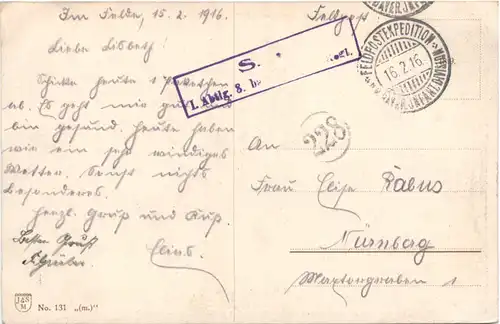 Im Felde, 15.2.1916.
Feldpost
Liebe Lisbeth!
Schicke heute 1 Paketchen
ab. Es geht mir gut
bin gesund. Heute haben
wir ein sehr windiges
Wetter. Sonst nichts
besonderes.
Herzl. Gruß und Kuß
Elias.
Besten Gruß
S.
I. Abtlg. 8. b
FELDPOSTEXPEDITION
16.2.16.
228
An
Frau Elise Rabus
Nürnberg
Maxtorgraben 1
No. 131 „(m.)"